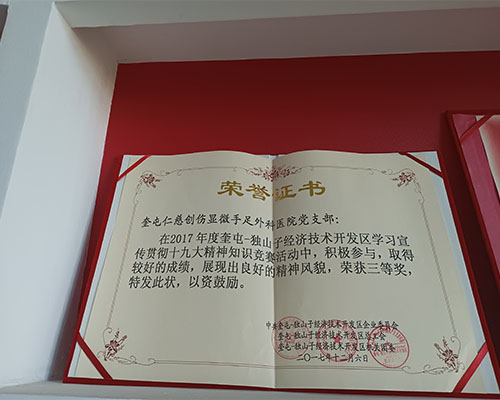 荣誉证书
奎屯仁慈创伤显微手足外科医院党支部：
在2017年度奎屯-独山子经济技术开发区学习宣
传贯彻十九大精神知识竞赛活动中，积极参与，取得
较好的成绩，展现出良好的精神风貌，荣获三等奖，
特发此状，以资鼓励。
中共奎屯-独山子经济技术开发区企业委员会
奎屯-独山子经济技术开发区总工会
奎屯-独山子经济技术开发区机关团委
二〇一七年十二月六日